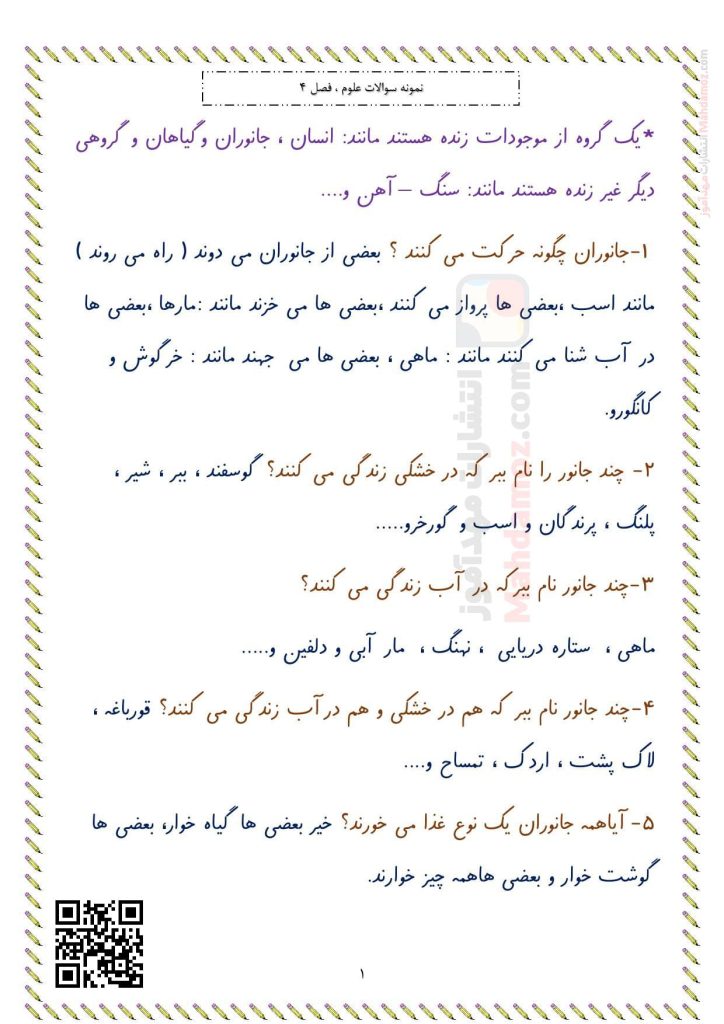 نمونه سوالات علوم ، فصل ۴
*یک گروه از موجودات زنده هستند مانند: انسان ، جانوران وگیاهان و گروهی
دیگر غیر زنده هستند مانند: سنگ – آهن و....
۱-جانوران چگونه حرکت می کنند ؟ بعضی از جانوران می دوند ( راه می روند )
مانند اسب ،بعضی ها پرواز می کنند ،بعضی ها می خزند مانند :مارها ،بعضی ها
در آب شنا می کنند مانند : ماهی ، بعضی ها می جهند مانند : خرگوش و
کانگورو.
۲- چند جانور را نام ببر که در خشکی زندگی می کنند؟ گوسفند ، ببر ، شیر ،
پلنگ ، پرندگان و اسب و گورخرو.....
۳-چند جانور نام ببرکه در آب زندگی می کنند؟
ماهی ، ستاره دریایی ، نهنگ ، مار آبی و دلفین و.....
۴-چند جانور نام ببر که هم در خشکی و هم درآب زندگی می کنند؟ قورباغه ،
لاک پشت ، اردک ، تمساح و....
۵- آیاهمه جانوران یک نوع غذا می خورند؟ خیر بعضی ها گیاه خوار، بعضی ها
گوشت خوار و بعضی هاهمه چیز خوارند.
۱
انتشارات مهدآموز
Mahdamoz.com
انتشارات مهدآموز Mahdamoz.com